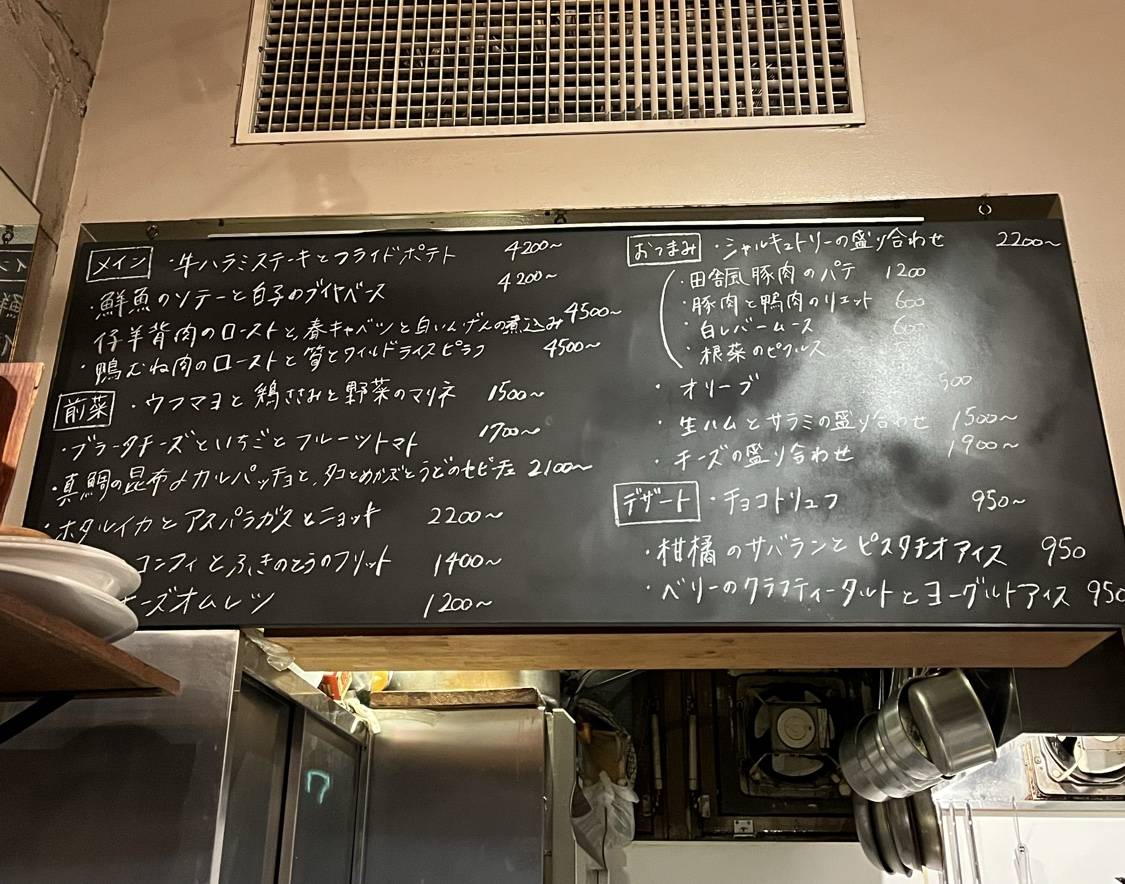 メイン ・牛ハラミステーキとフライドポテト 4200〜
・鮮魚のソテーと白子のブイヤベース 4200〜
仔羊背肉のローストと、春キャベツと白いんげんの煮込み 4500〜
・鴨むね肉のローストと筍とワイルドライスピラフ 4500〜
前菜 ・ウフマヨと鶏ささみと野菜のマリネ 1500〜
・ブラータチーズといちごとフルーツトマト 1700〜
・真鯛の昆布〆カルパッチョと、タコとめかぶとうどのセビーチェ 2100〜
・ホタルイカとアスパラガスとニョッキ 2200〜
コンフィとふきのとうのフリット 1400〜
ーズオムレツ 1200〜
おつまみ ・シャルキュトリーの盛り合わせ 2200〜
・田舎風豚肉のパテ 1200
・豚肉と鴨肉のリエット 600
・白レバームース 600
・根菜のピクルス
・オリーブ 500
・生ハムとサラミの盛り合わせ 1500〜
・チーズの盛り合わせ 1900〜
デザート ・チョコトリュフ 950〜
・柑橘のサバランとピスタチオアイス 950
・ベリーのクラフティータルトとヨーグルトアイス 950